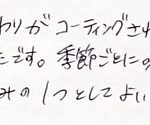 わりがコーティングされ
です。季節ごとにの
みの1つとしてよい